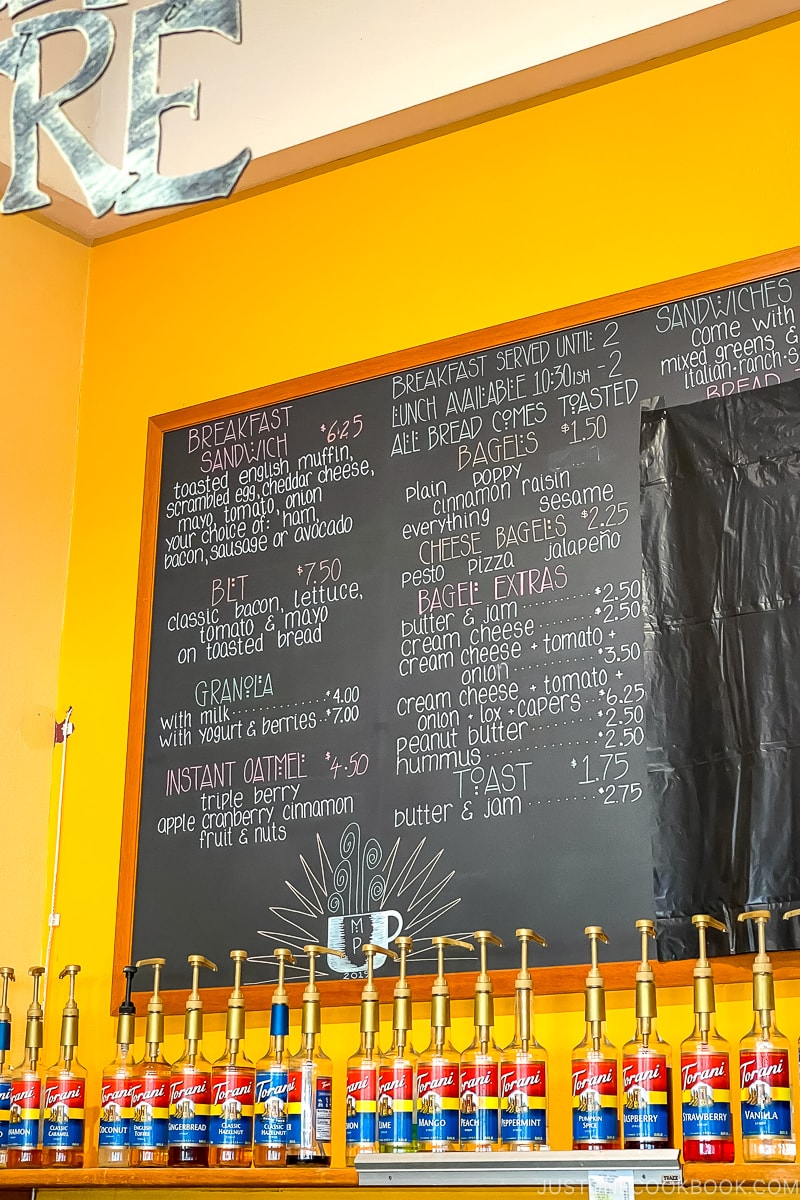 RE
BREAKFAST
SANDWICH $6.25
toasted english muffin,
scrambled egg, cheddar cheese,
mayo, tomato, onion
your choice of: ham,
bacon, sausage or avocado
BLT $7.50
classic bacon, lettuce,
tomato & mayo
on toasted bread
GRANOLA
with milk $4.00
with yogurt & berries $7.00
INSTANT OATMEL $4.50
triple berry
apple cranberry cinnamon
fruit & nuts
BREAKFAST SERVED UNTIL 2
LUNCH AVAILABLE 10:30ISH - 2
ALL BREAD COMES TOASTED
BAGELS $1.50
plain poppy
cinnamon raisin
everything sesame
CHEESE BAGELS $2.25
pesto pizza jalapeño
BAGEL EXTRAS
butter & jam $2.50
cream cheese $2.50
cream cheese + tomato +
onion $3.50
cream cheese + tomato +
onion + lox + capers $6.25
peanut butter $2.50
hummus $2.50
TOAST $1.75
butter & jam $2.75
SANDWICHES
come with
mixed greens &
italian·ranch·s
BREAD
MP
2015
Torani
NAMON
Torani
CLASSIC
CARAMEL
Torani
COCONUT
Torani
ENGLISH
TOFFEE
Torani
GINGERBREAD
Torani
CLASSIC
HAZELNUT
Torani
CLASSIC
HAZELNUT
Torani
Torani
LIME
Torani
MANGO
Torani
PEACH
Torani
PEPPERMINT
Torani
PUMPKIN
SPICE
Torani
RASPBERRY
Torani
STRAWBERRY
Torani
VANILLA
JUSTONECOOKBOOK.COM